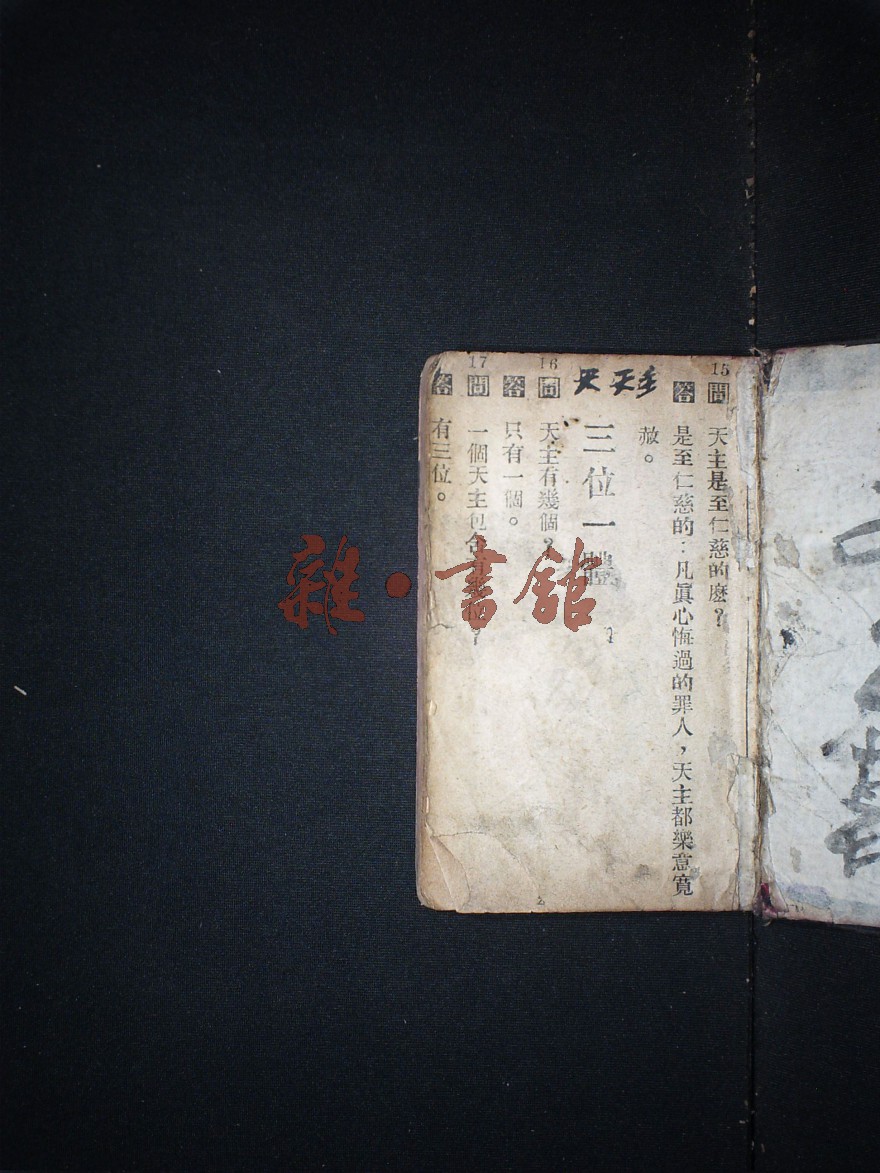 15
問 天主是至仁慈的麽?
答 是至仁慈的:凡眞心悔過的罪人,天主都樂意寬
赦。
天主
三位一體
16
問 天主有幾個?
答 只有一個。
17
問 一個天主包含有幾位?
答 有三位。
2
雜·書館